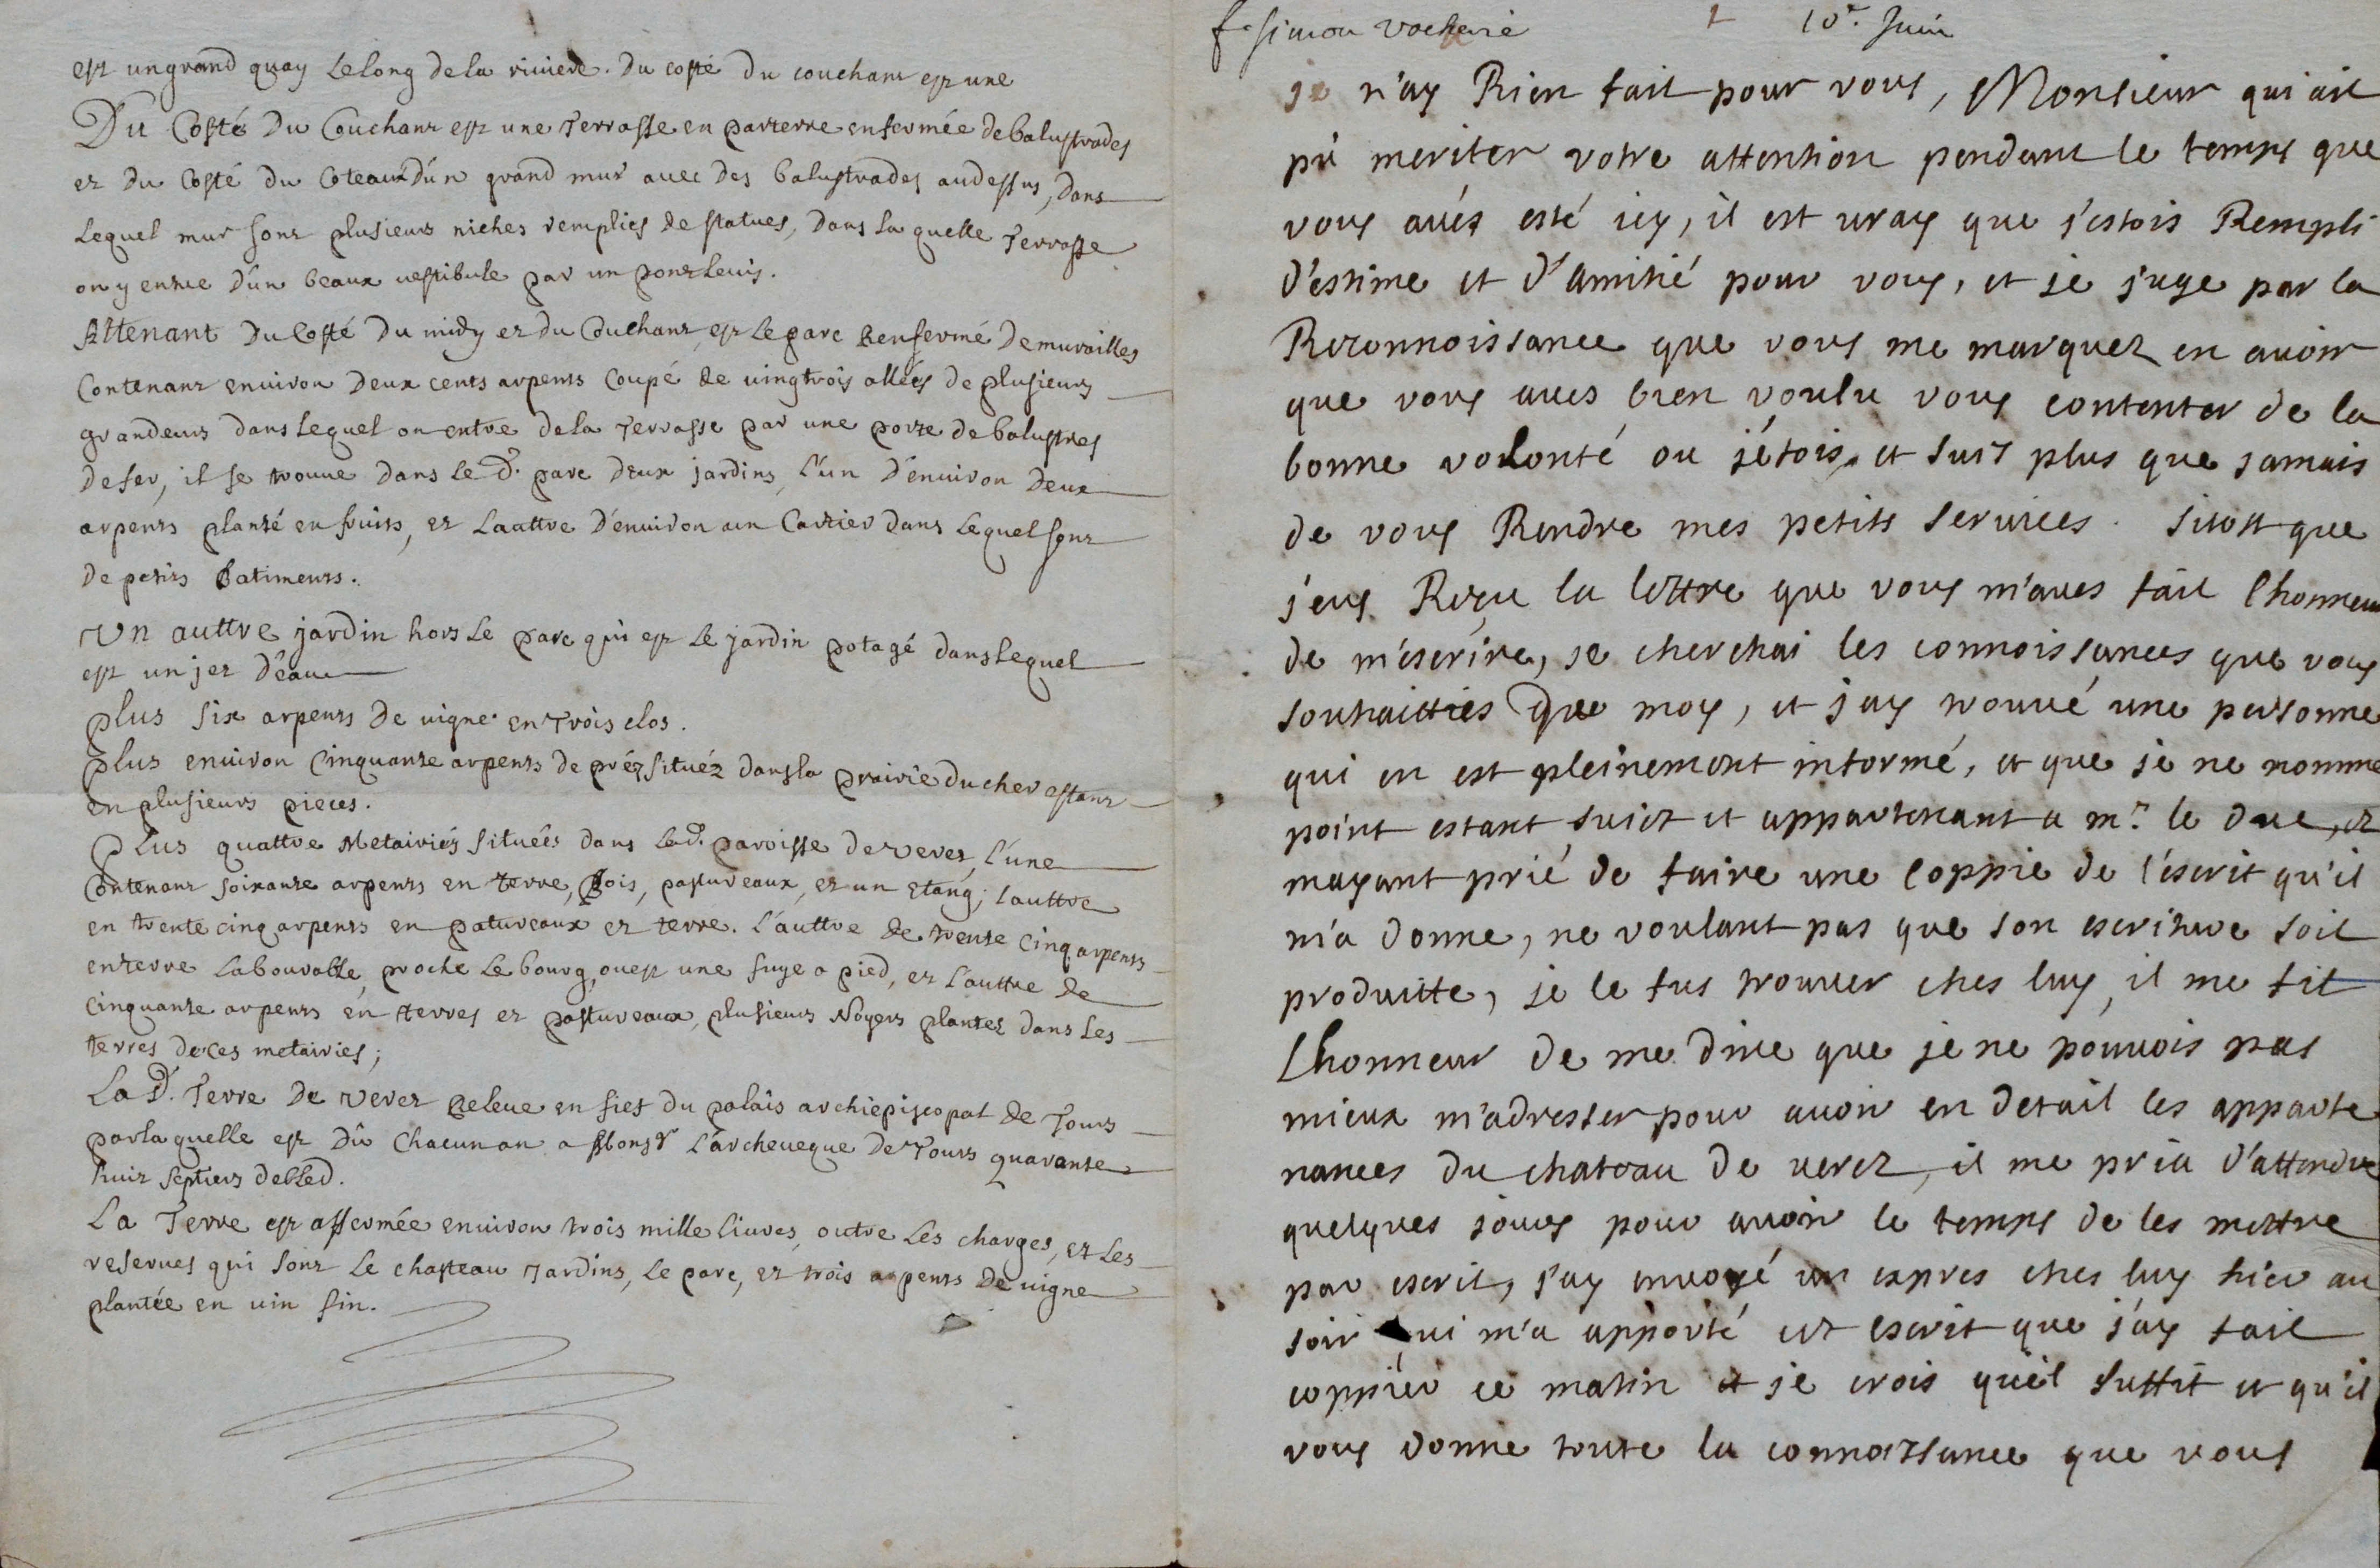 est un grand quay Le long de la riuiere. Du costé Du couchant est une
Du Costé Du Couchant est une Terrasse en parterre enfermée de balustrades
et Du Costé Du Coteaux D'ún grand mur auec Des balustrades audessus, Dans
Lequel mur sont plusieurs niches remplies de statues, Dans la quelle Terrasse
on y entre D'un beaux vestibule par un pont levis.
Attenant Du Costé Du midy et du Couchant est Le parc Renfermé De murailles
Contenant enuiron Deux cents arpents Coupé de uingtrois allées de plusieurs
grandeurs dans Lequel on entre de la Terrasse par une porte de balustres
de fer, il se trouue dans Le d. parc Deux jardins, L'un D'enuiron Deux
arpents planté en fruits, et La attre D'enuiron un Cartier dans Lequel sont
De petits Batiments.
Un auttre jardin hors Le parc qui est Le jardin potagé dans Lequel
est un jet D'eau
plus six arpents De uigne en Trois clos.
plus enuiron Cinquante arpents de préz situéz dans la prairie du cher estant
en plusieurs pieces.
Plus quattre Metairiés situées dans Le d. paroisse De Veretz, L'úne
Contenant soixante arpents en terre, Bois, pastureaux, et un etang; Lauttre
en trente cinq arpents en patureaux et terre. L'áuttre de trente Cinq arpents
en terre Labourable, proche Le bourg, ou est une fuye a pied, et L'auttre de
Cinquante arpents en terres et pastureaux, plusieurs Noyers plantez dans Les
terres de Ces metairies;
La d. Terre De Veretz Releue en fief du palais archiepiscopal de Tours
par laquelle est Dû Chacun an a Monsr L'archeueque De Tours quarante
huit septiers de bled.
La Terre est affermée enuiron trois mille Liures, outre Les charges, et Les
reserues qui sont Le chasteau Jardins, Le parc, et trois arpents De uigne
plantée en uin fin.
f. simon vacherie 10e. Juin
je n'ay Rien fait pour vous, Monsieur qui ait
pû meriter votre attention pendant le temps que
vous avés esté icy, il est uray que j'estois Rempli
D'estime et D'amitié pour vous, et je juge par la
Reconnoissance que vous me marquez en auoir
que vous aues bien voulu vous contenter de la
bonne volonté ou j'étois et suis plus que jamais
de vous Rendre mes petits seruices. sitost que
j'eus Reçu la lettre que vous m'aues fait lhonneur
de m'escrire, je cherchai les connoissances que vous
souhaittiés que moy, et j'ay trouué une personne
qui en est pleinement informé, et que je ne nomme
point estant suiet et appartenant a mr. le Duc, et
mayant prié de faire une coppie de l'éscrit qu'il
m'a donne, ne voulant pas que son escriture soit
produitte, je le fus trouuer ches luy, il me fit
Lhonneur de me dire que je ne pouuois pas
mieux m'adresser pour auoir en detail les apparte
nances du chateau de veretz, il me pria d'attendre
quelques jours pour auoir le temps de les mettre
par escrit, j'ay enuoyé un expres ches luy hier au
soir qui m'a apporté cet escrit que j'ay fait
coppier ce matin et je crois qu'il suffit et qu'il
vous donne toute la connoissance que vous